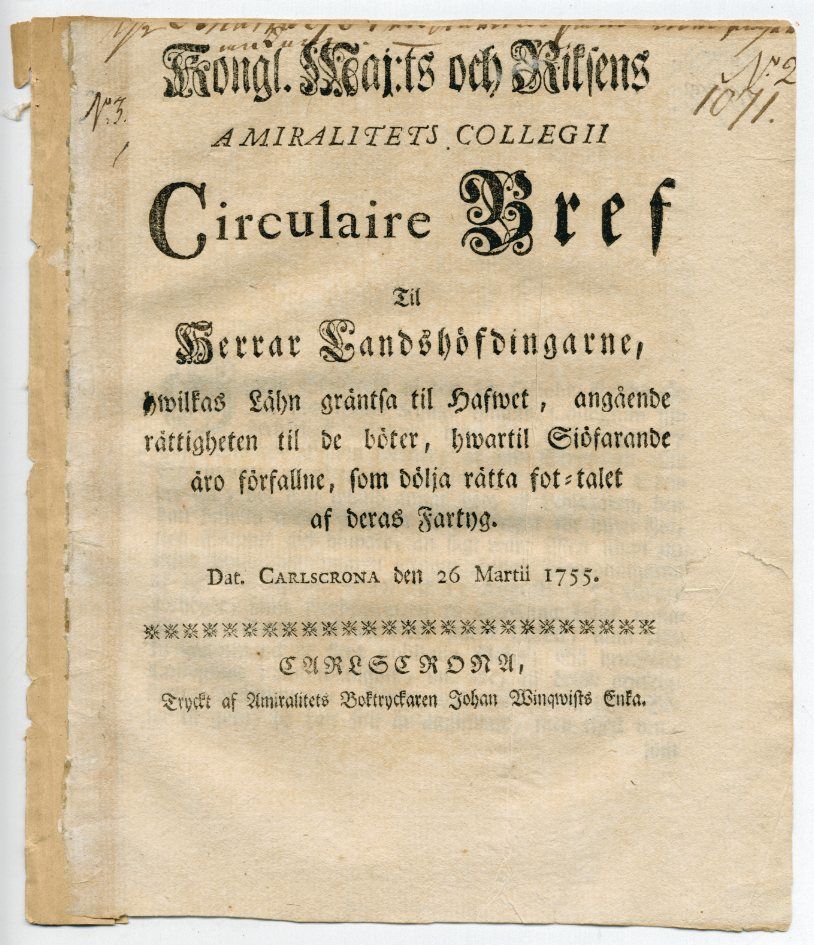 Kongl. Maj:ts och Riksens
N:o 2
N:o 3.
1071.
AMIRALITETS COLLEGII
Circulaire Bref
Til
Herrar Landshöfdingarne,
hwilkas Lähn gräntsa til Hafwet, angående
rättigheten til de böter, hwartil Siöfarande
äro förfallne, som dölja rätta fot-talet
af deras Fartyg.
Dat. CARLSCRONA den 26 Martii 1755.
CARLSCRONA,
Tryckt af Amiralitets Boktryckaren Johan Winqwists Enka.